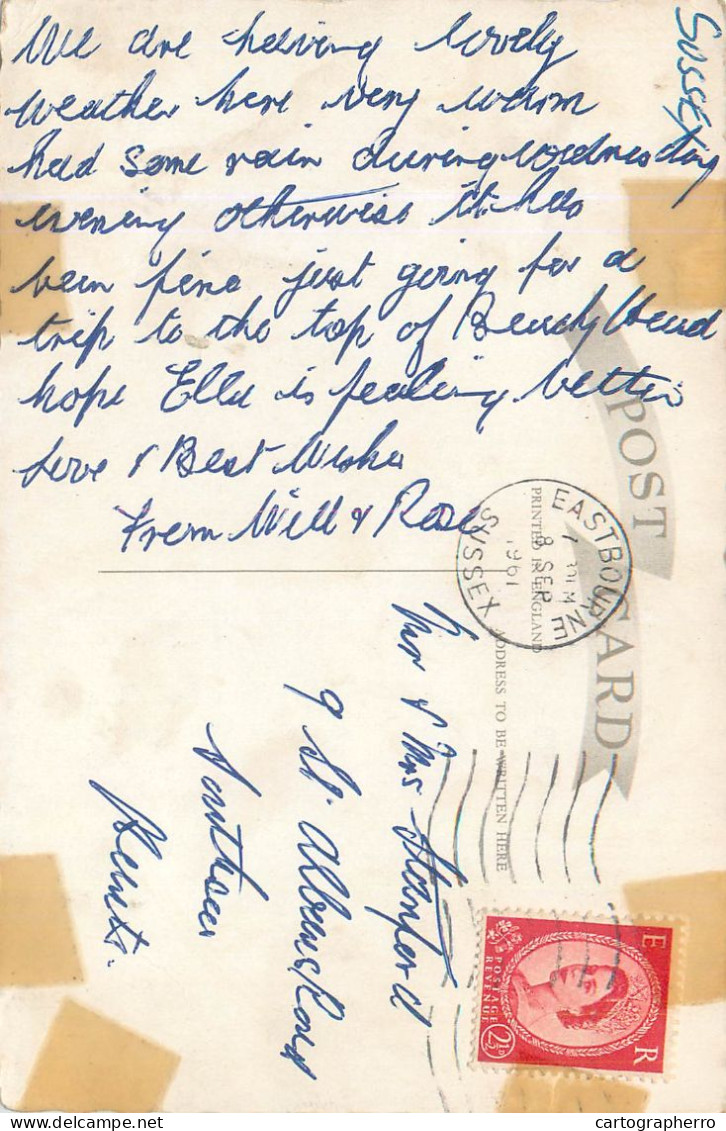 SUSSEX
We are having lovely
weather here very warm
had some rain during Wednesday
evening otherwise it has
been fine just going for a
trip to the top of Beachy Head
hope Ella is feeling better
Love & Best Wishes
From Will & Rose
POST CARD
PRINTED IN ENGLAND
ADDRESS TO BE WRITTEN HERE
EASTBOURNE
8 SEP
1961
SUSSEX
Mr & Mrs Stanford
9 St. Albans Road
Southsea
Hants.
E R
POSTAGE
REVENUE
2½D
delcampe.net
cartographerro